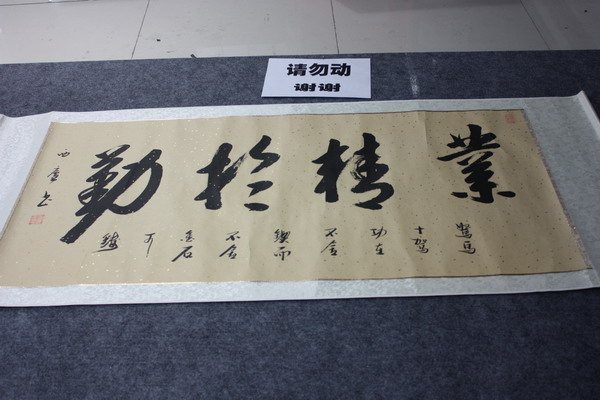 请勿动
谢谢
業精於勤
駑馬
十駕
功在
不舍
鍥而
不舍
金石
可
鏤